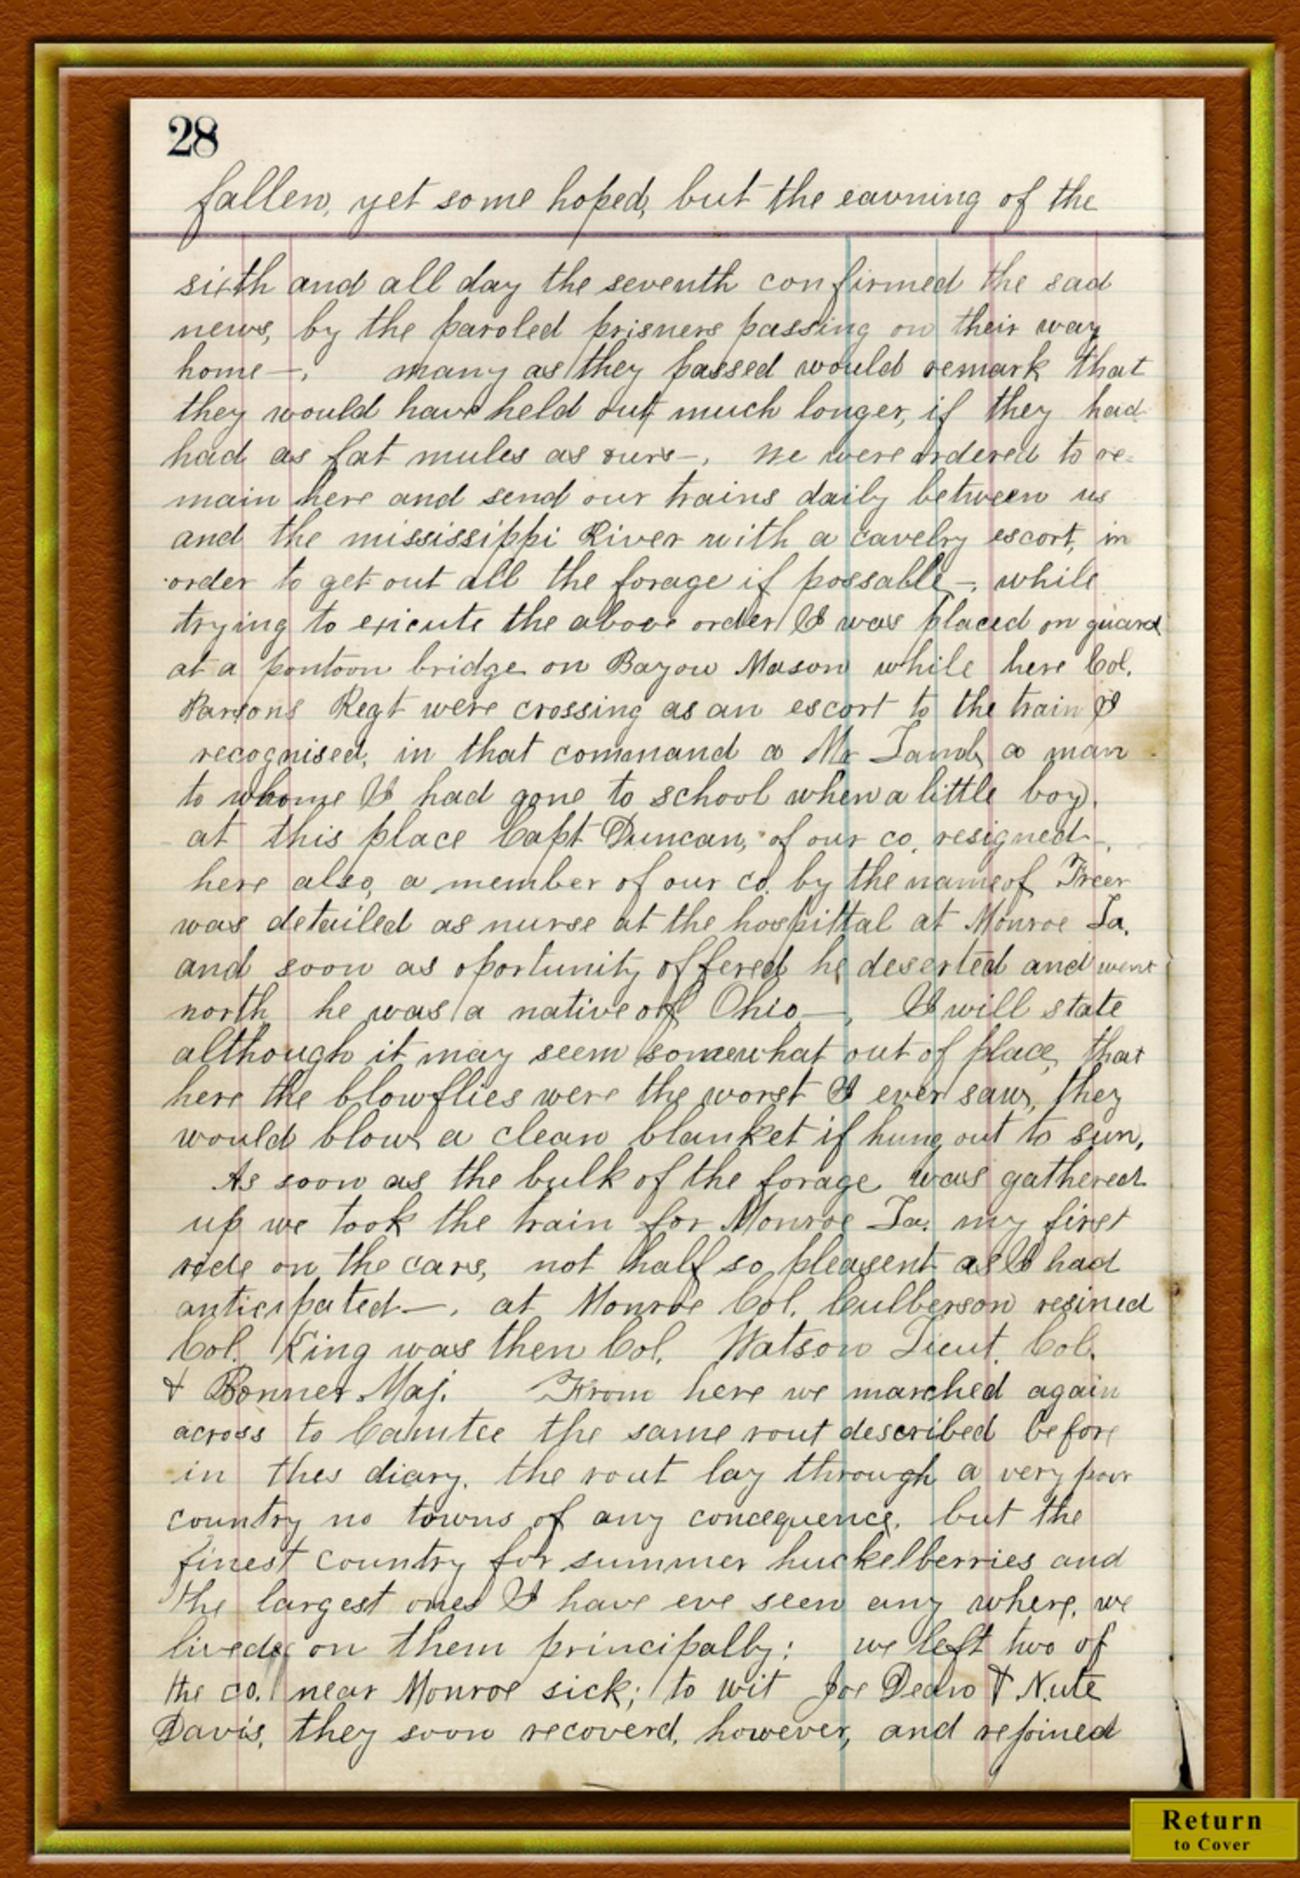 28
fallen, yet some hoped, but the eavning of the
sixth and all day the seventh confirmed the sad
news, by the paroled prisners passing on their way
home—. many as they passed would remark that
they would have held out much longer, if they had
had as fat mules as ours—. We were ordered to re-
main here and send our trains daily between us
and the mississippi River with a cavelry escort, in
order to get out all the forage if possable—. while
trying to exicute the above order I was placed on guard
at a pontoon bridge on Bayou Mason while here Col.
Parsons Regt were crossing as an escort to the train I
recognised, in that command a Mr Land, a man
to whome I had gone to school when a little boy.
at this place Capt Duncan, of our co. resigned—.
here also, a member of our co. by the name of Freer
was detailed as nurse at the hospittal at Monroe La.
and soon as oportunity offered he deserted and went
north he was a native of Ohio—. I will state
although it may seem somewhat out of place, that
here the blowflies were the worst I ever saw, they
would blow a clean blanket if hung out to sun,
As soon as the bulk of the forage was gathered
up we took the train for Monroe La. my first
ride on the cars, not half so pleasent as I had
anticipated—. at Monroe Col. Culberson resined
Col. King was then Col. Watson Lieut. Col.
& Bonner Maj. From here we marched again
across to Camtee the same rout described before
in thes diary. the rout lay through a very poor
country no towns of any concequence, but the
finest country for summer huckelberries and
the largest ones I have eve seen any where, we
lived on them principally: we left two of
the co. near Monroe sick; to wit Joe Dedro & Nute
Davis, they soon recoverd, however, and rejoined
Return
to Cover